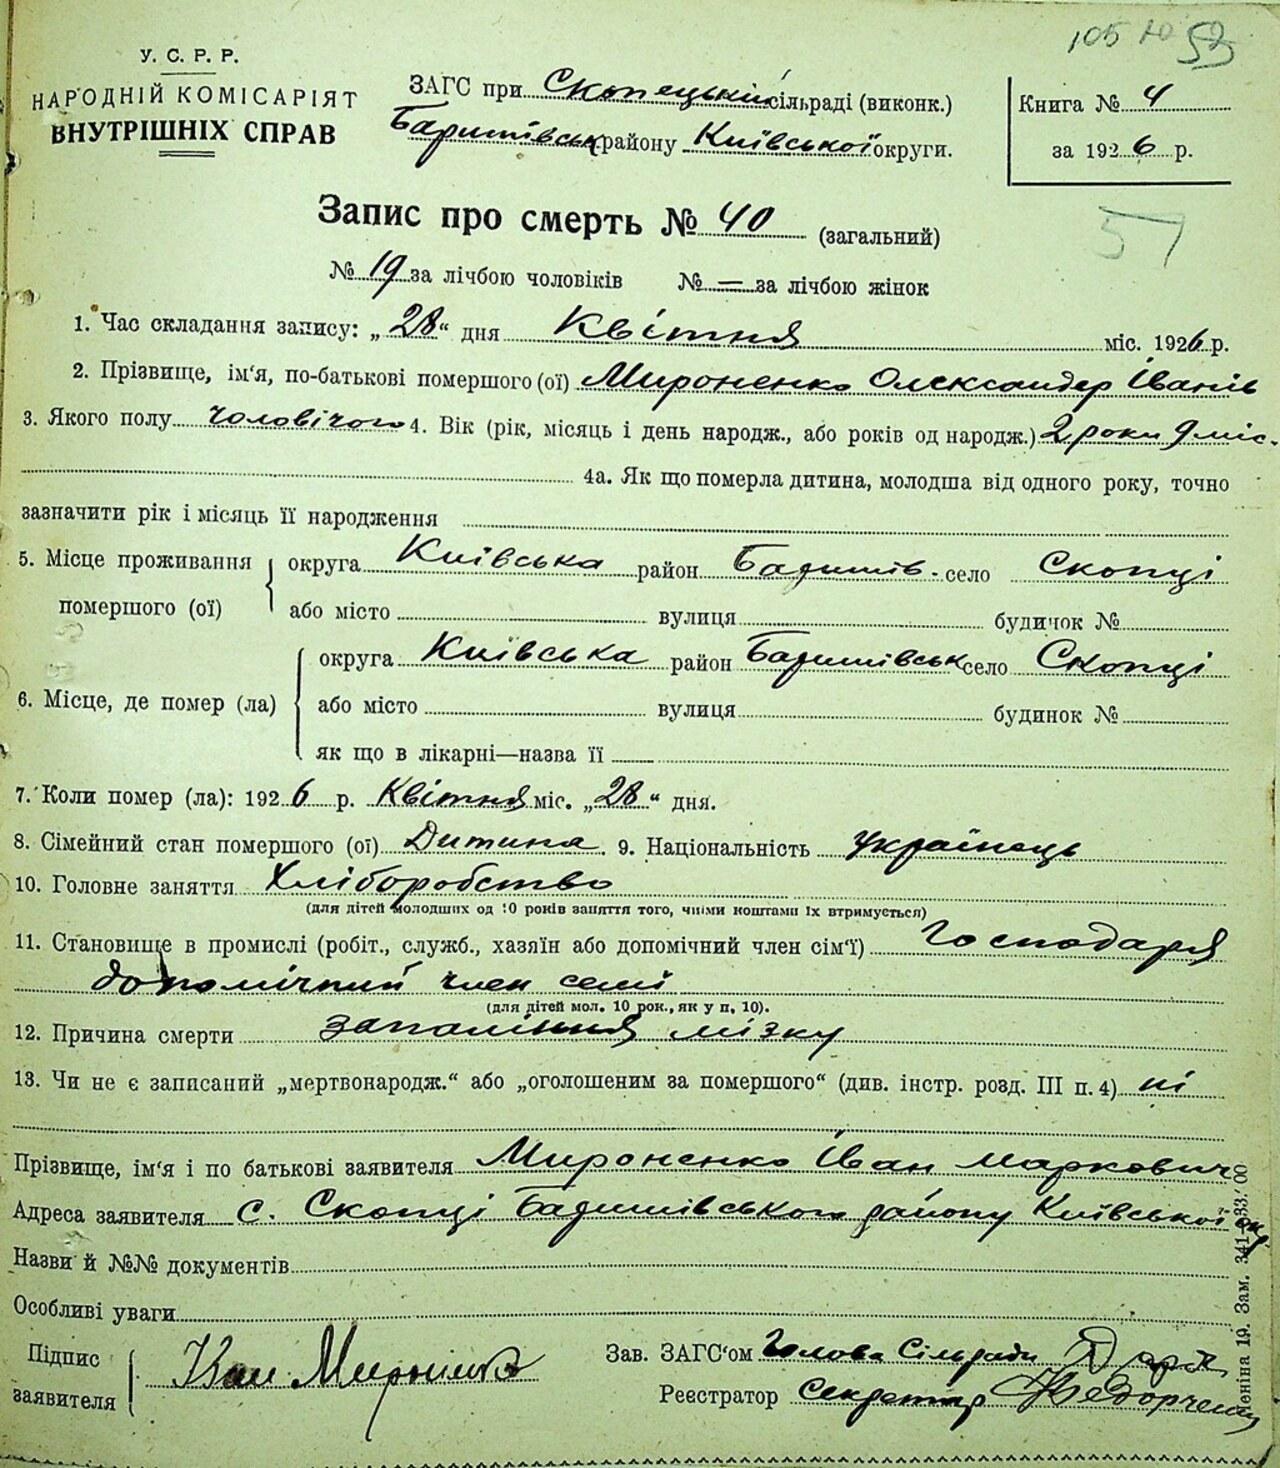 105 10 59
У. С. Р. Р.
НАРОДНІЙ КОМІСАРІЯТ
ВНУТРІШНІХ СПРАВ
ЗАГС при Скопецькій сільраді (виконк.)
Баришівськ району Київської округи.
Книга № 4
за 1926 р.
57
Запис про смерть № 40 (загальний)
№ 19 за лічбою чоловіків № — за лічбою жінок
1. Час складання запису: „28“ дня Квітня міс. 1926 р.
2. Прізвище, ім'я, по-батькові помершого (ої) Мироненко Олександер Іванів
3. Якого полу чоловічого 4. Вік (рік, місяць і день народж., або років од народж.) 2 роки 9 міс.
4а. Як що померла дитина, молодша від одного року, точно
зазначити рік і місяць її народження
5. Місце проживання помершого (ої)
округа Київська район Баришів. село Скопці
або місто вулиця будичок №
6. Місце, де помер (ла)
округа Київська район Баришівськ село Скопці
або місто вулиця будинок №
як що в лікарні—назва її
7. Коли помер (ла): 1926 р. Квітня міс. „28“ дня.
8. Сімейний стан помершого (ої) Дитина. 9. Національність Українець
10. Головне заняття Хліборобство
(для дітей молодших од 10 років заняття того, чиїми коштами їх втримується)
11. Становище в промислі (робіт., служб., хазяїн або допомічний член сім'ї) Господаря
допомічний член семі
(для дітей мол. 10 рок., як у п. 10).
12. Причина смерти запаління мізку
13. Чи не є записаний „мертвонародж.“ або „оголошеним за помершого“ (див. інстр. розд. III п. 4) ні
Прізвище, ім'я і по батькові заявителя Мироненко Іван Маркович
Адреса заявителя с. Скопці Баришівського району Київської ок.
Назви й №№ документів
Особливі уваги
Підпис заявителя Иван Мироненко
Зав. ЗАГС'ом Голова Сільради
Реєстратор Секретар Федорченко
Леніна 19. Зам. 341—33.00